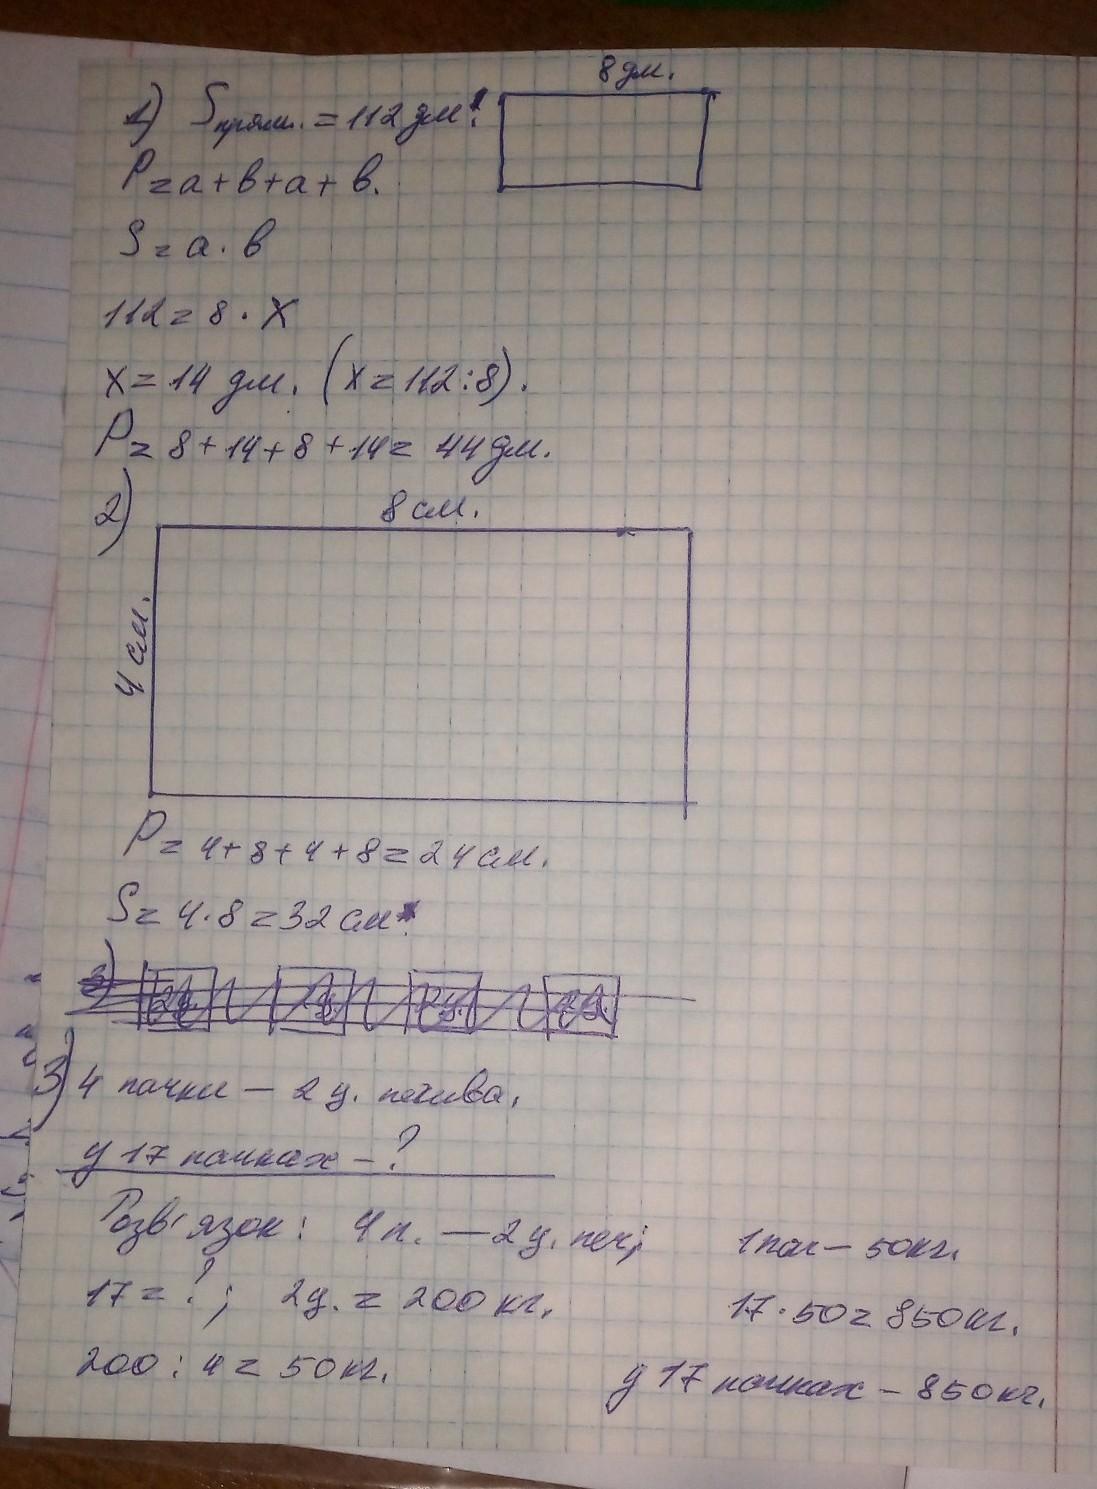 8 дм.
1) Sпрям. = 112 дм².
P = a + b + a + b.
S = a · b
112 = 8 · x
x = 14 дм. (x = 112 : 8).
P = 8 + 14 + 8 + 14 = 44 дм.
2)
8 см.
4 см.
P = 4 + 8 + 4 + 8 = 24 см.
S = 4 · 8 = 32 см².
3) 4 пачки – 2 ц. печива.
у 17 пачках – ?
Розв'язок: 4 п. – 2 ц. печ; 1 пач – 50 кг.
17 = ?; 2ц. = 200 кг. 17 · 50 = 850 кг.
200 : 4 = 50 кг. у 17 пачках – 850 кг.